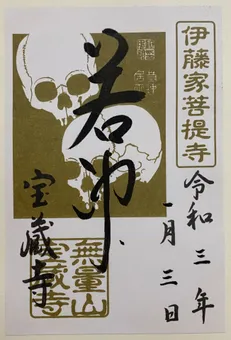 伊藤家菩提寺
令和三年
一月三日
若冲
宝蔵寺
無量山
宝蔵寺